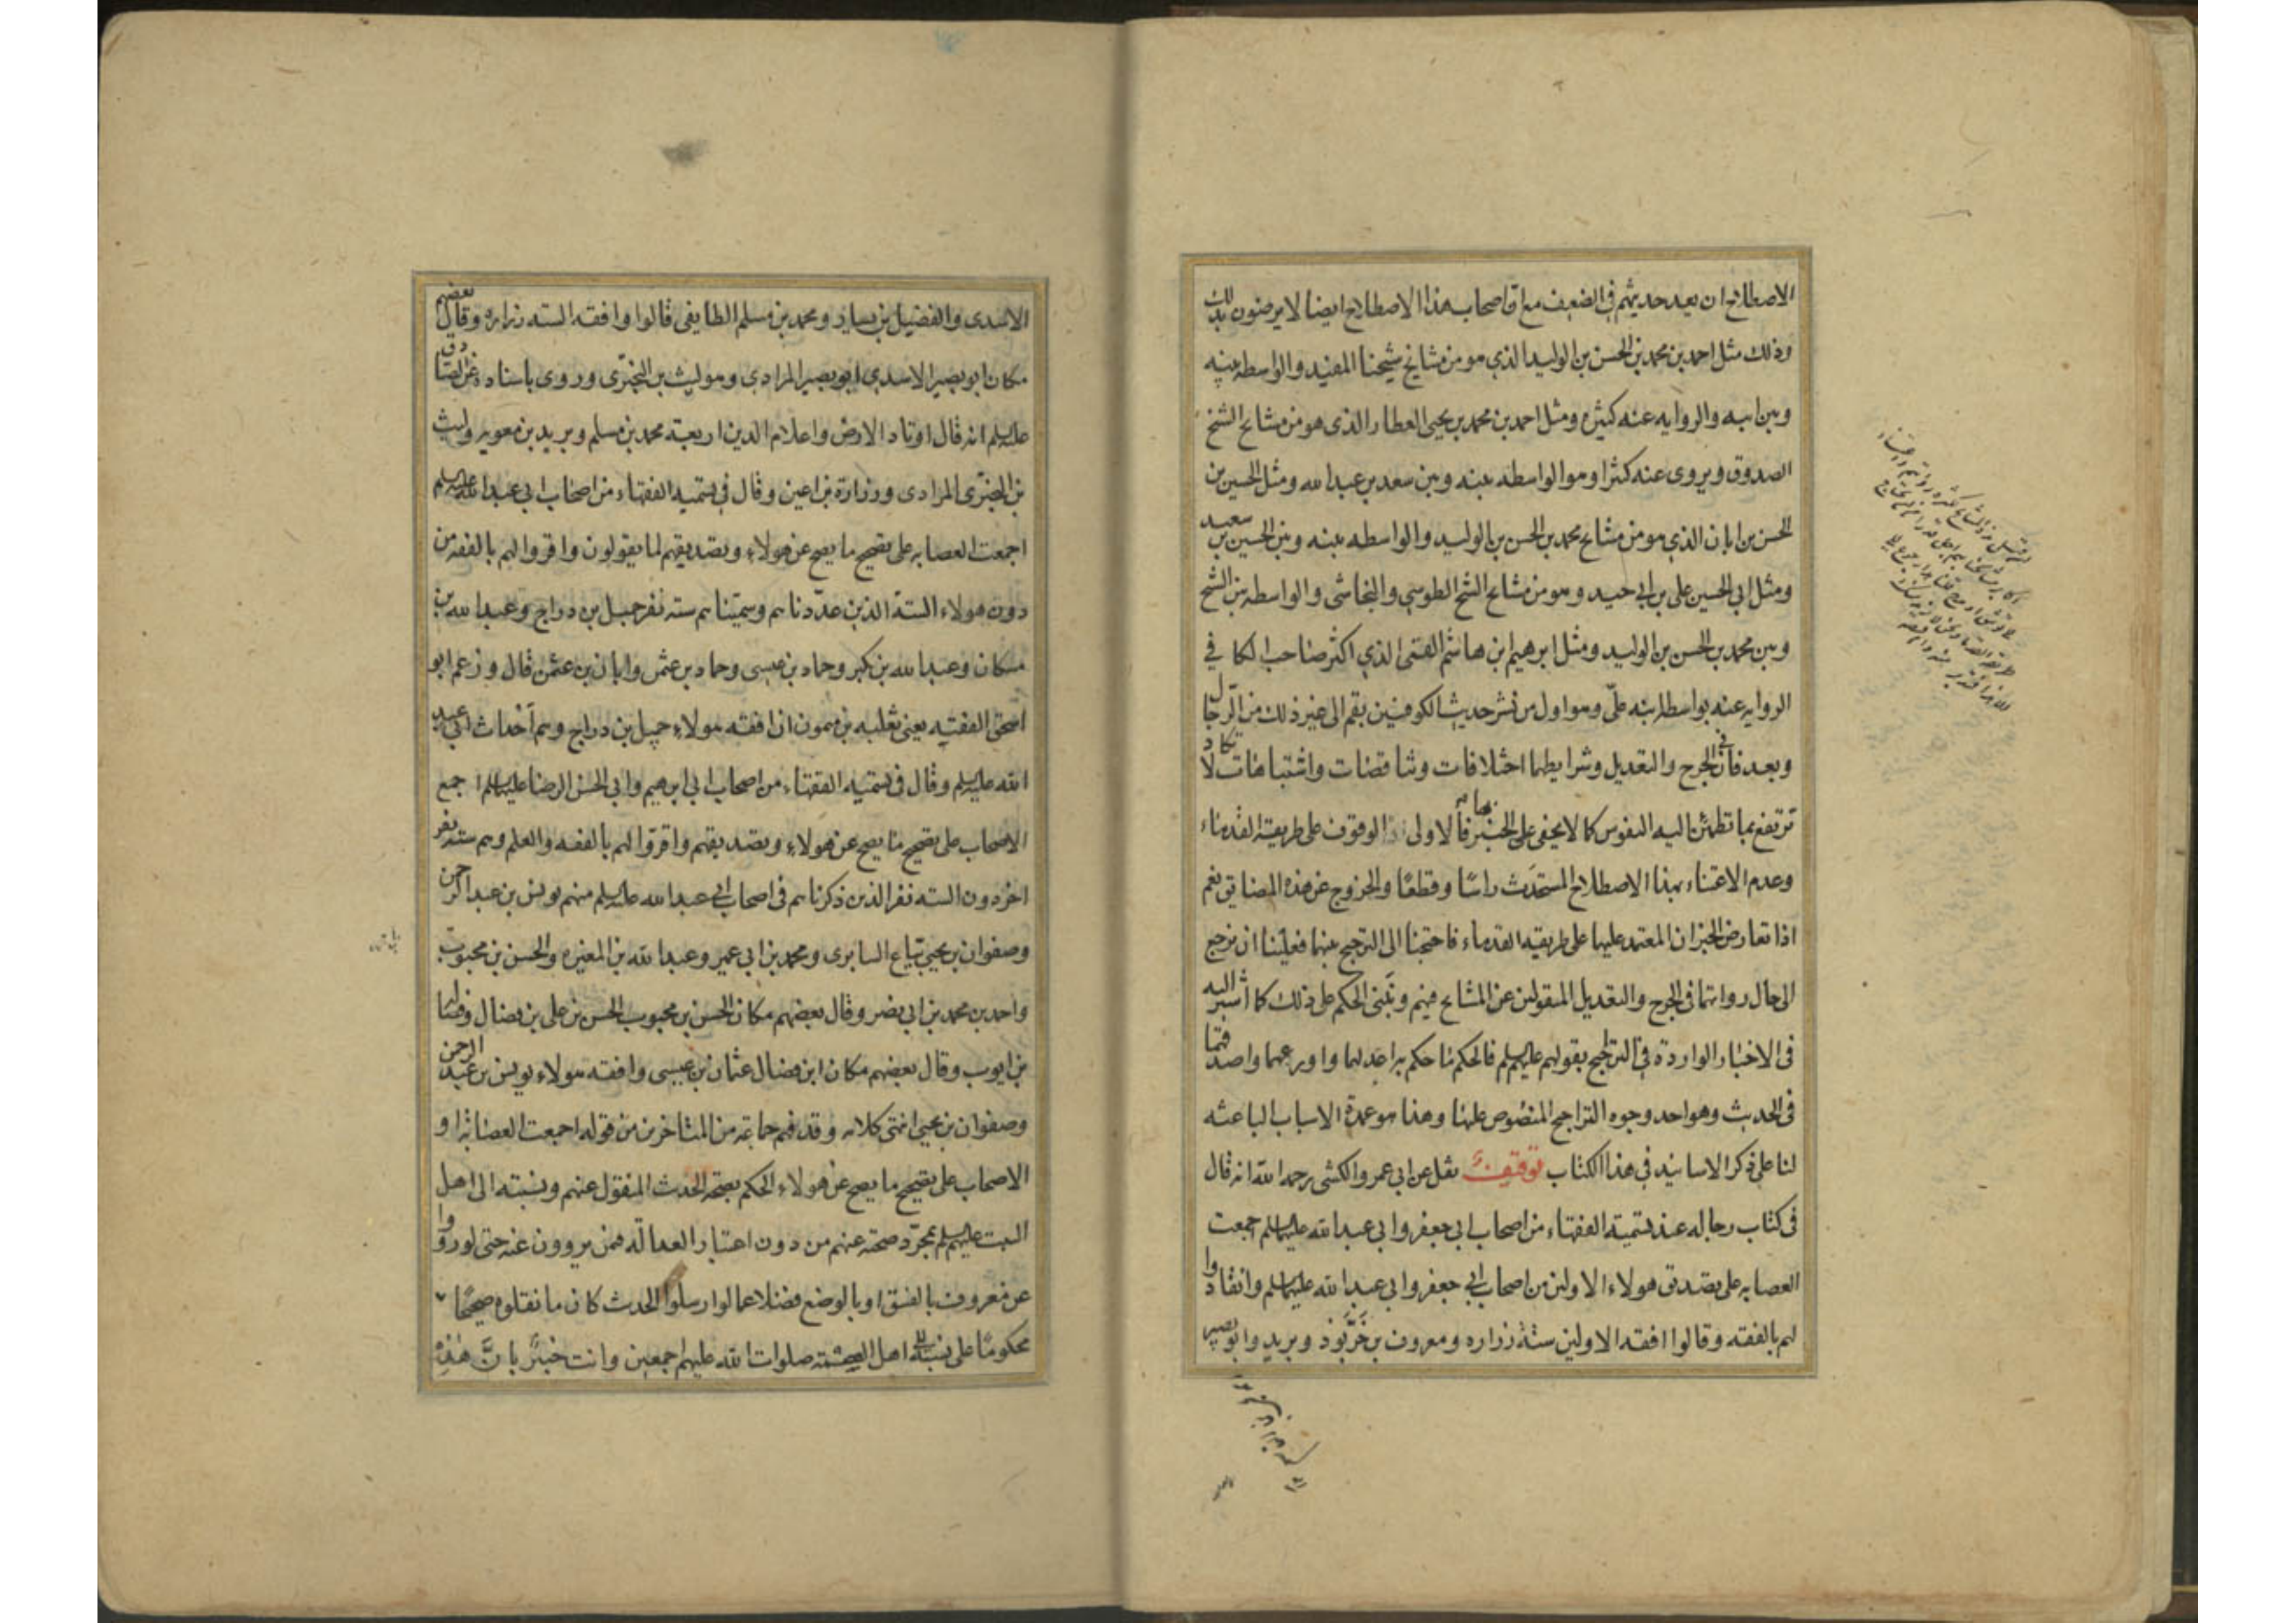 الاصطلاح ان يعد حديثهم في الضعيف مع ان اصحاب هذا الاصطلاح ايضا لا يرضون بذلك
وذلك مثل احمد بن محمد بن الحسن بن الوليد الذي هو من مشايخ شيخنا المفيد والواسطه بينه
وبين ابيه والروايه عنه كثيره ومثل احمد بن محمد بن يحيى العطار الذي هو من مشايخ الشيخ
الصدوق ويروى عنه كثيرا وهو الواسطه بينه وبين سعد بن عبد الله ومثل الحسين بن
الحسن بن ابان الذي هو من مشايخ محمد بن الحسن بن الوليد والواسطه بينه وبين الحسين بن سعيد
ومثل ابي الحسين علي بن ابي جيد وهو من مشايخ الشيخ الطوسي والنجاشى والواسطه بين الشيخ
وبين محمد بن الحسن بن الوليد ومثل ابرهيم ابن هاشم القمى الذي اكثر صاحب الكافي
الروايه عنه بواسطه ابنه علي وهو اول من نشر حديث الكوفيين بقم الى غير ذلك من الرجال
وبعد فان في الجرح والتعديل وشرايطهما اختلافات وتناقضات واشتباهات لا تكاد
ترتفع بما تطمئن اليه النفوس كما لا يخفى على الخبير بها فالاولى الوقوف على طريقة القدماء
وعدم الاعتناء بهذا الاصطلاح المستحدث راسًا وقطعًا والخروج عن هذه المضايق نعم
اذا تعارض الخبران المعتمد عليهما على طريقه القدماء فاحتجنا الى الترجيح بينهما فعلينا ان نرجع
الى حال رواتهما في الجرح والتعديل المنقولين عن المشايخ فيهم ونبنى الحكم على ذلك كما اشير اليه
في الاخبار الواردة في التراجيح بقولهم عليهم السلم فالحكم ما حكم به اعدلهما واورعهما واصدقهما
في الحديث وهو احد وجوه التراجيح المنصوص عليها وهذا هو عمدة الاسباب الباعثه
لنا على ذكر الاسانيد في هذا الكتاب توقيف نقل عن ابي عمرو الكشى رحمه الله انه قال
في كتاب رجاله عند تسمية الفقهاء من اصحاب ابي جعفر وابي عبد الله عليهما السلم اجمعت
العصابه على تصديق هولاء الاولين من اصحاب ابي جعفر وابي عبد الله عليهما السلم وانقادوا
لهم بالفقه وقالوا افقه الاولين ستة زراره ومعروف بن خربوذ وبريد وابو بصير
الاسدى والفضيل بن يسار ومحمد بن مسلم الطايفى قالوا وافقه السته زراره وقال بعضهم
مكان ابو بصير الاسدي ابو بصير المرادي وهو ليث بن البخترى وروى باسناده عن الصادق
عليه السلم انه قال اوتاد الارض واعلام الدين اربعة محمد بن مسلم وبريد بن معويه وليث
بن البخترى المرادى وزرارة بن اعين وقال في تسمية الفقهاء من اصحاب ابي عبد الله عليه السلم
اجمعت العصابه على تصحيح ما يصح عن هولاء وتصديقهم لما يقولون واقروا لهم بالفقه من
دون هولاء الستة الذين عددناهم وسميناهم سته نفر جميل بن دراج وعبد الله بن
مسكان وعبد الله بن بكير وحماد بن عيسى وحماد بن عثمن وابان بن عثمن قال وزعم ابو
اسحق الفقيه يعني ثعلبه بن ميمون ان افقه هولاء جميل بن دراج وهم احداث ابي عبد
الله عليه السلم وقال في تسمية الفقهاء من اصحاب ابي ابرهيم وابي الحسن الرضا عليهما السلم اجمع
الاصحاب على تصحيح ما يصح عن هولاء وتصديقهم واقروا لهم بالفقه والعلم وهم سته نفر
اخر دون السته نفر الذين ذكرناهم في اصحاب ابي عبد الله عليه السلم منهم يونس بن عبد الرحمن
وصفوان بن يحيى بياع السابرى ومحمد بن ابي عمير وعبد الله بن المغيره والحسن بن محبوب
واحمد بن محمد بن ابي نصر وقال بعضهم مكان الحسن بن محبوب الحسن بن على بن فضال وفضاله
بن ايوب وقال بعضهم مكان ابن فضال عثمان بن عيسى وافقه هولاء يونس بن عبد الرحمن
وصفوان بن يحيى انتهى كلامه وقد فهم جماعة من المتاخرين من قوله اجمعت العصابة او
الاصحاب على تصحيح ما يصح عن هولاء الحكم بصحة الحديث المنقول عنهم ونسبته الى اهل
البيت عليهم السلم بمجرد صحته عنهم من دون اعتبار العدالة فيمن يروون عنه حتى لو رووا
عن معروف بالفسق او بالوضع فضلا عما لو ارسلوا الحديث كان ما نقلوه صحيحًا
محكومًا على نسبته اهل العصمة صلوات الله عليهم اجمعين وانت خبير بانَّ هٰذِهِ